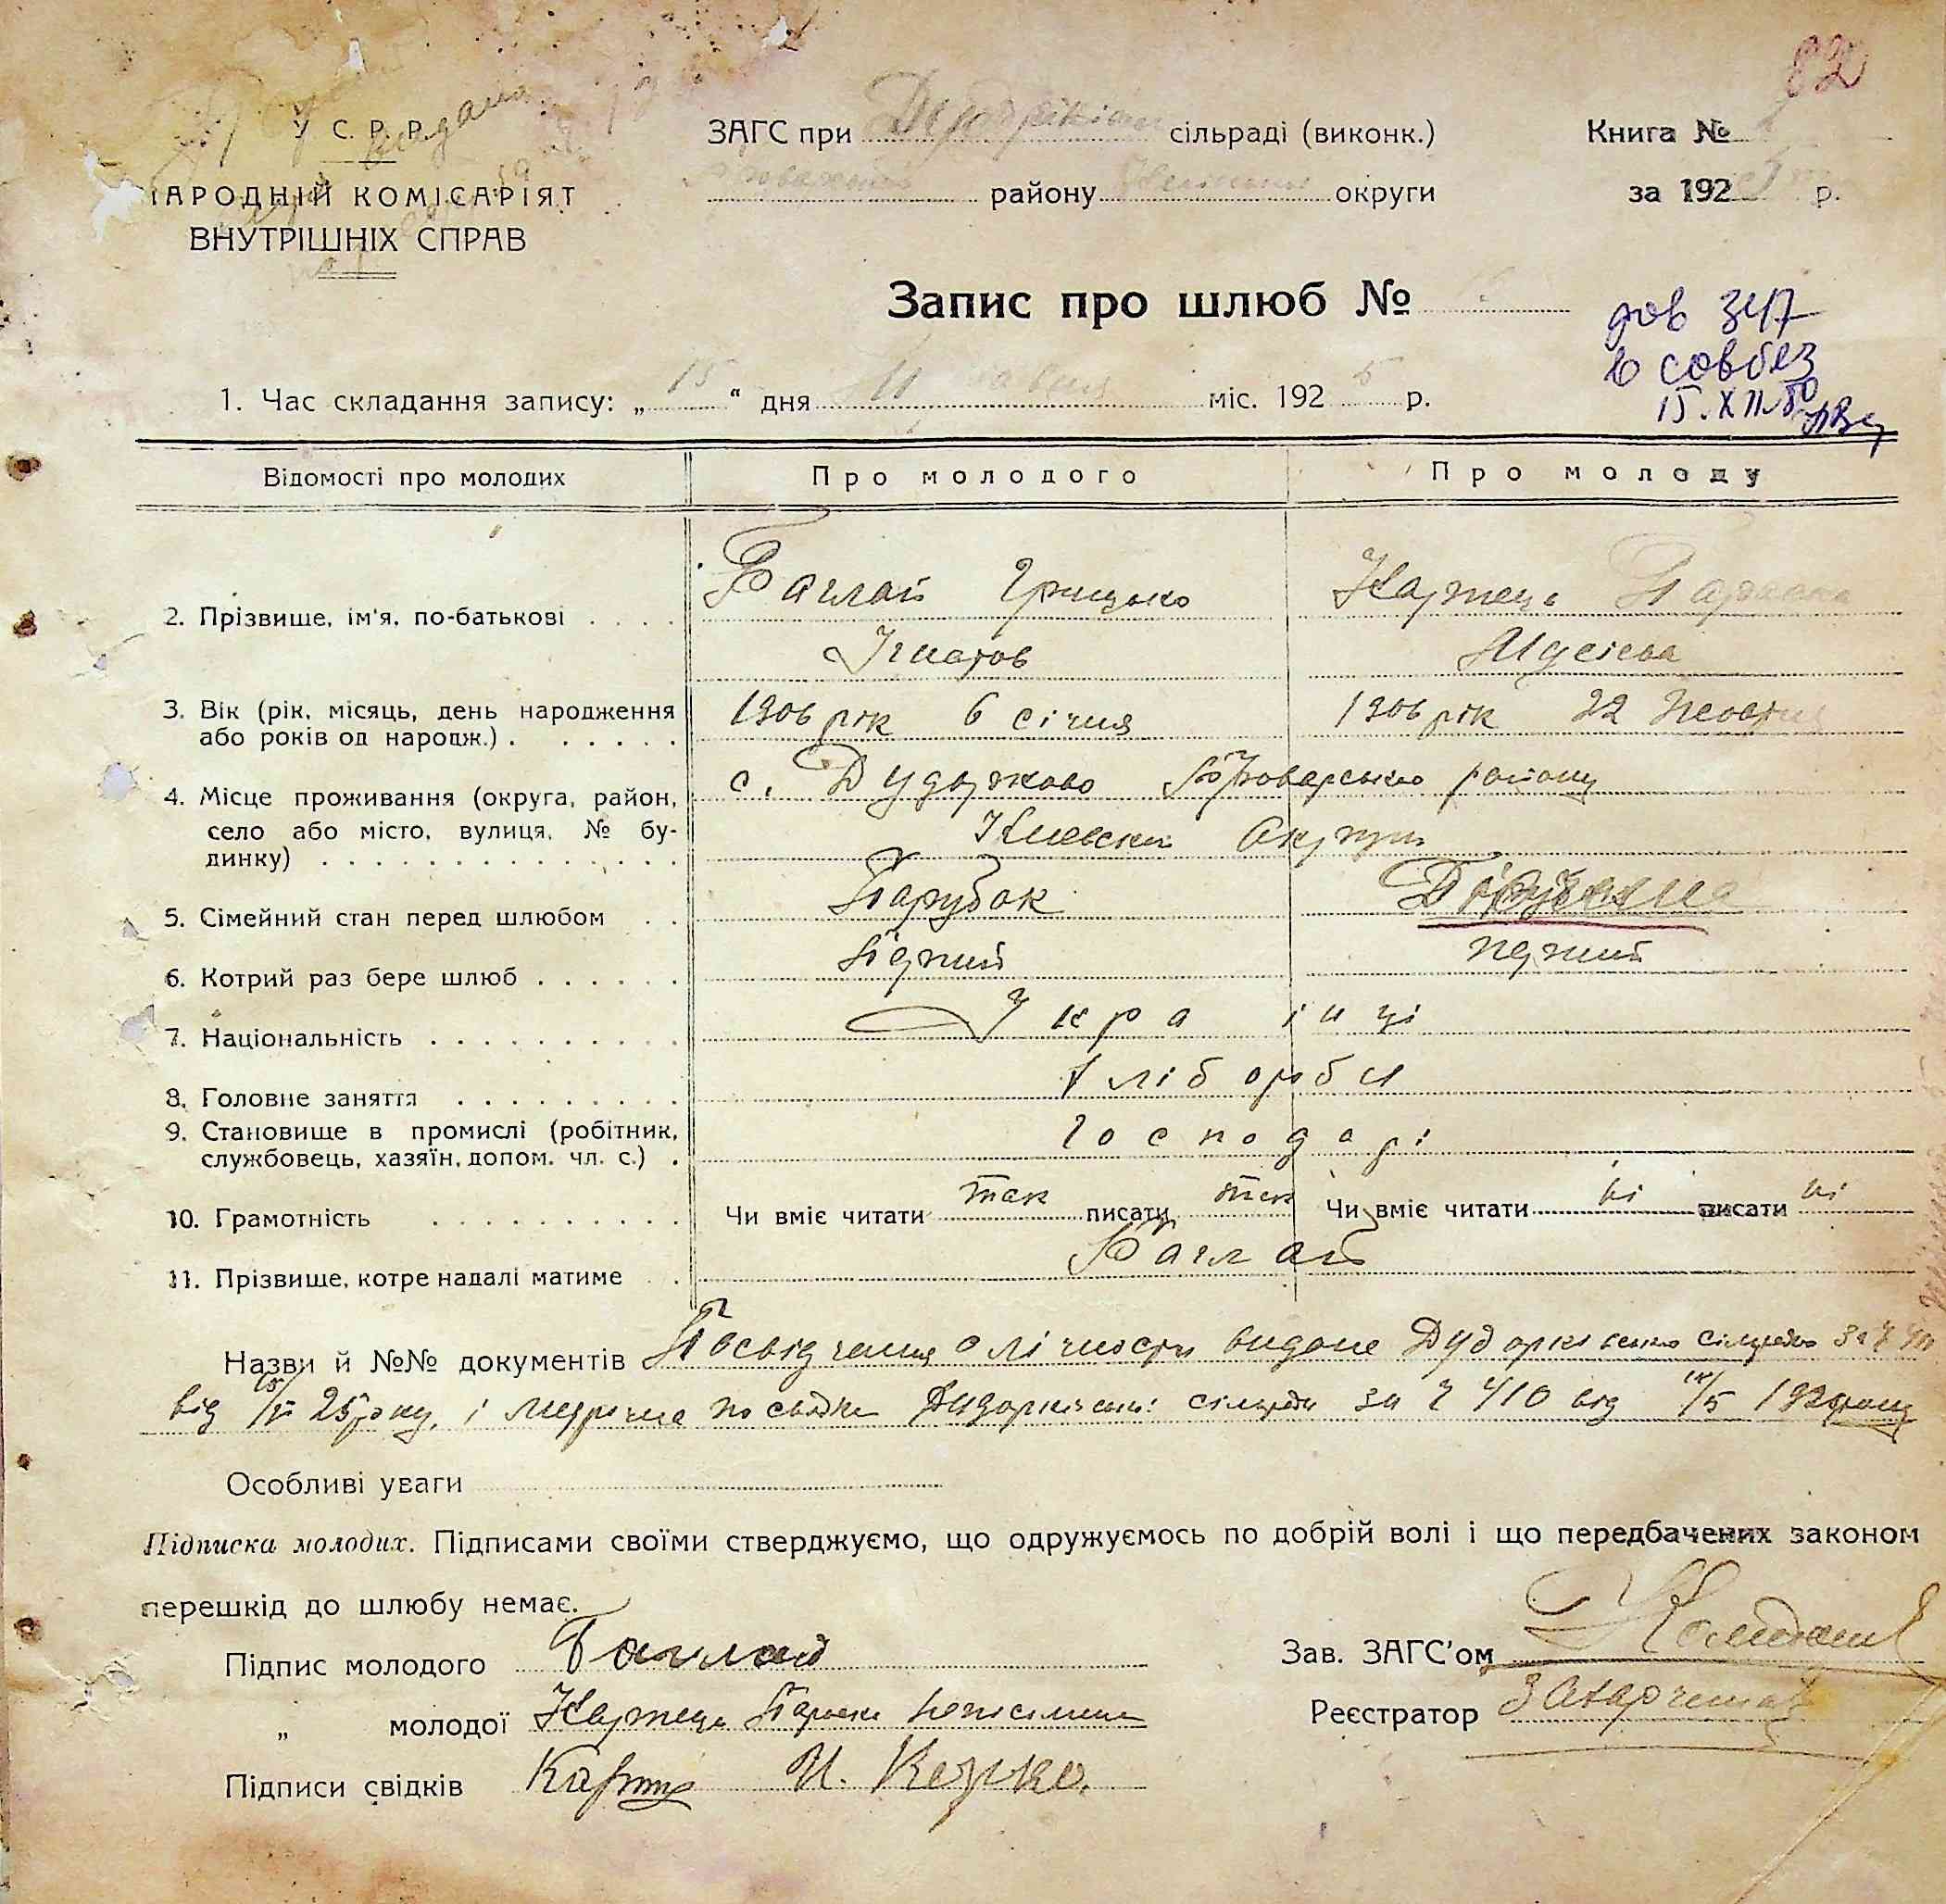 82
У С. Р. Р.
ЗАГС при сільраді (виконк.)
Книга №
НАРОДНІЙ КОМІСАРІЯТ
району округи
за 192 р.
ВНУТРІШНІХ СПРАВ
Запис про шлюб №
дов 347
в совбез
15.XII.50
1. Час складання запису: „ 15 “ дня міс. 192 5 р.
Відомості про молодих
Про молодого
Про молоду
2. Прізвище, ім'я, по-батькові
Баглай Грицько
Ігнатов
Картець Параска
3. Вік (рік, місяць, день народження або років од народж.)
1906 рік 6 січня
1906 рік 22 Жовтня
4. Місце проживання (округа, район, село або місто, вулиця, № будинку)
с. Дударково Броварського району
Киевскои Округи
5. Сімейний стан перед шлюбом
Парубок
Дівчина
6. Котрий раз бере шлюб
Перший
перший
7. Національність
Українці
8. Головне заняття
Хлібороби
9. Становище в промислі (робітник, службовець, хазяїн, допом. чл. с.)
Господарі
10. Грамотність
Чи вміє читати так писати так
Чи вміє читати ні писати ні
11. Прізвище, котре надалі матиме
Баглай
Назви й №№ документів Посвідчення о лічности видане сільради за
від 25 року, і метричне сільради за № 410 від /5 192
Особливі уваги
Підписка молодих. Підписами своїми стверджуємо, що одружуємось по добрій волі і що передбачених законом
перешкід до шлюбу немає.
Підпис молодого Баглай
Зав. ЗАГС'ом
„ молодої Картець Параска неписьмена
Реєстратор
Підписи свідків